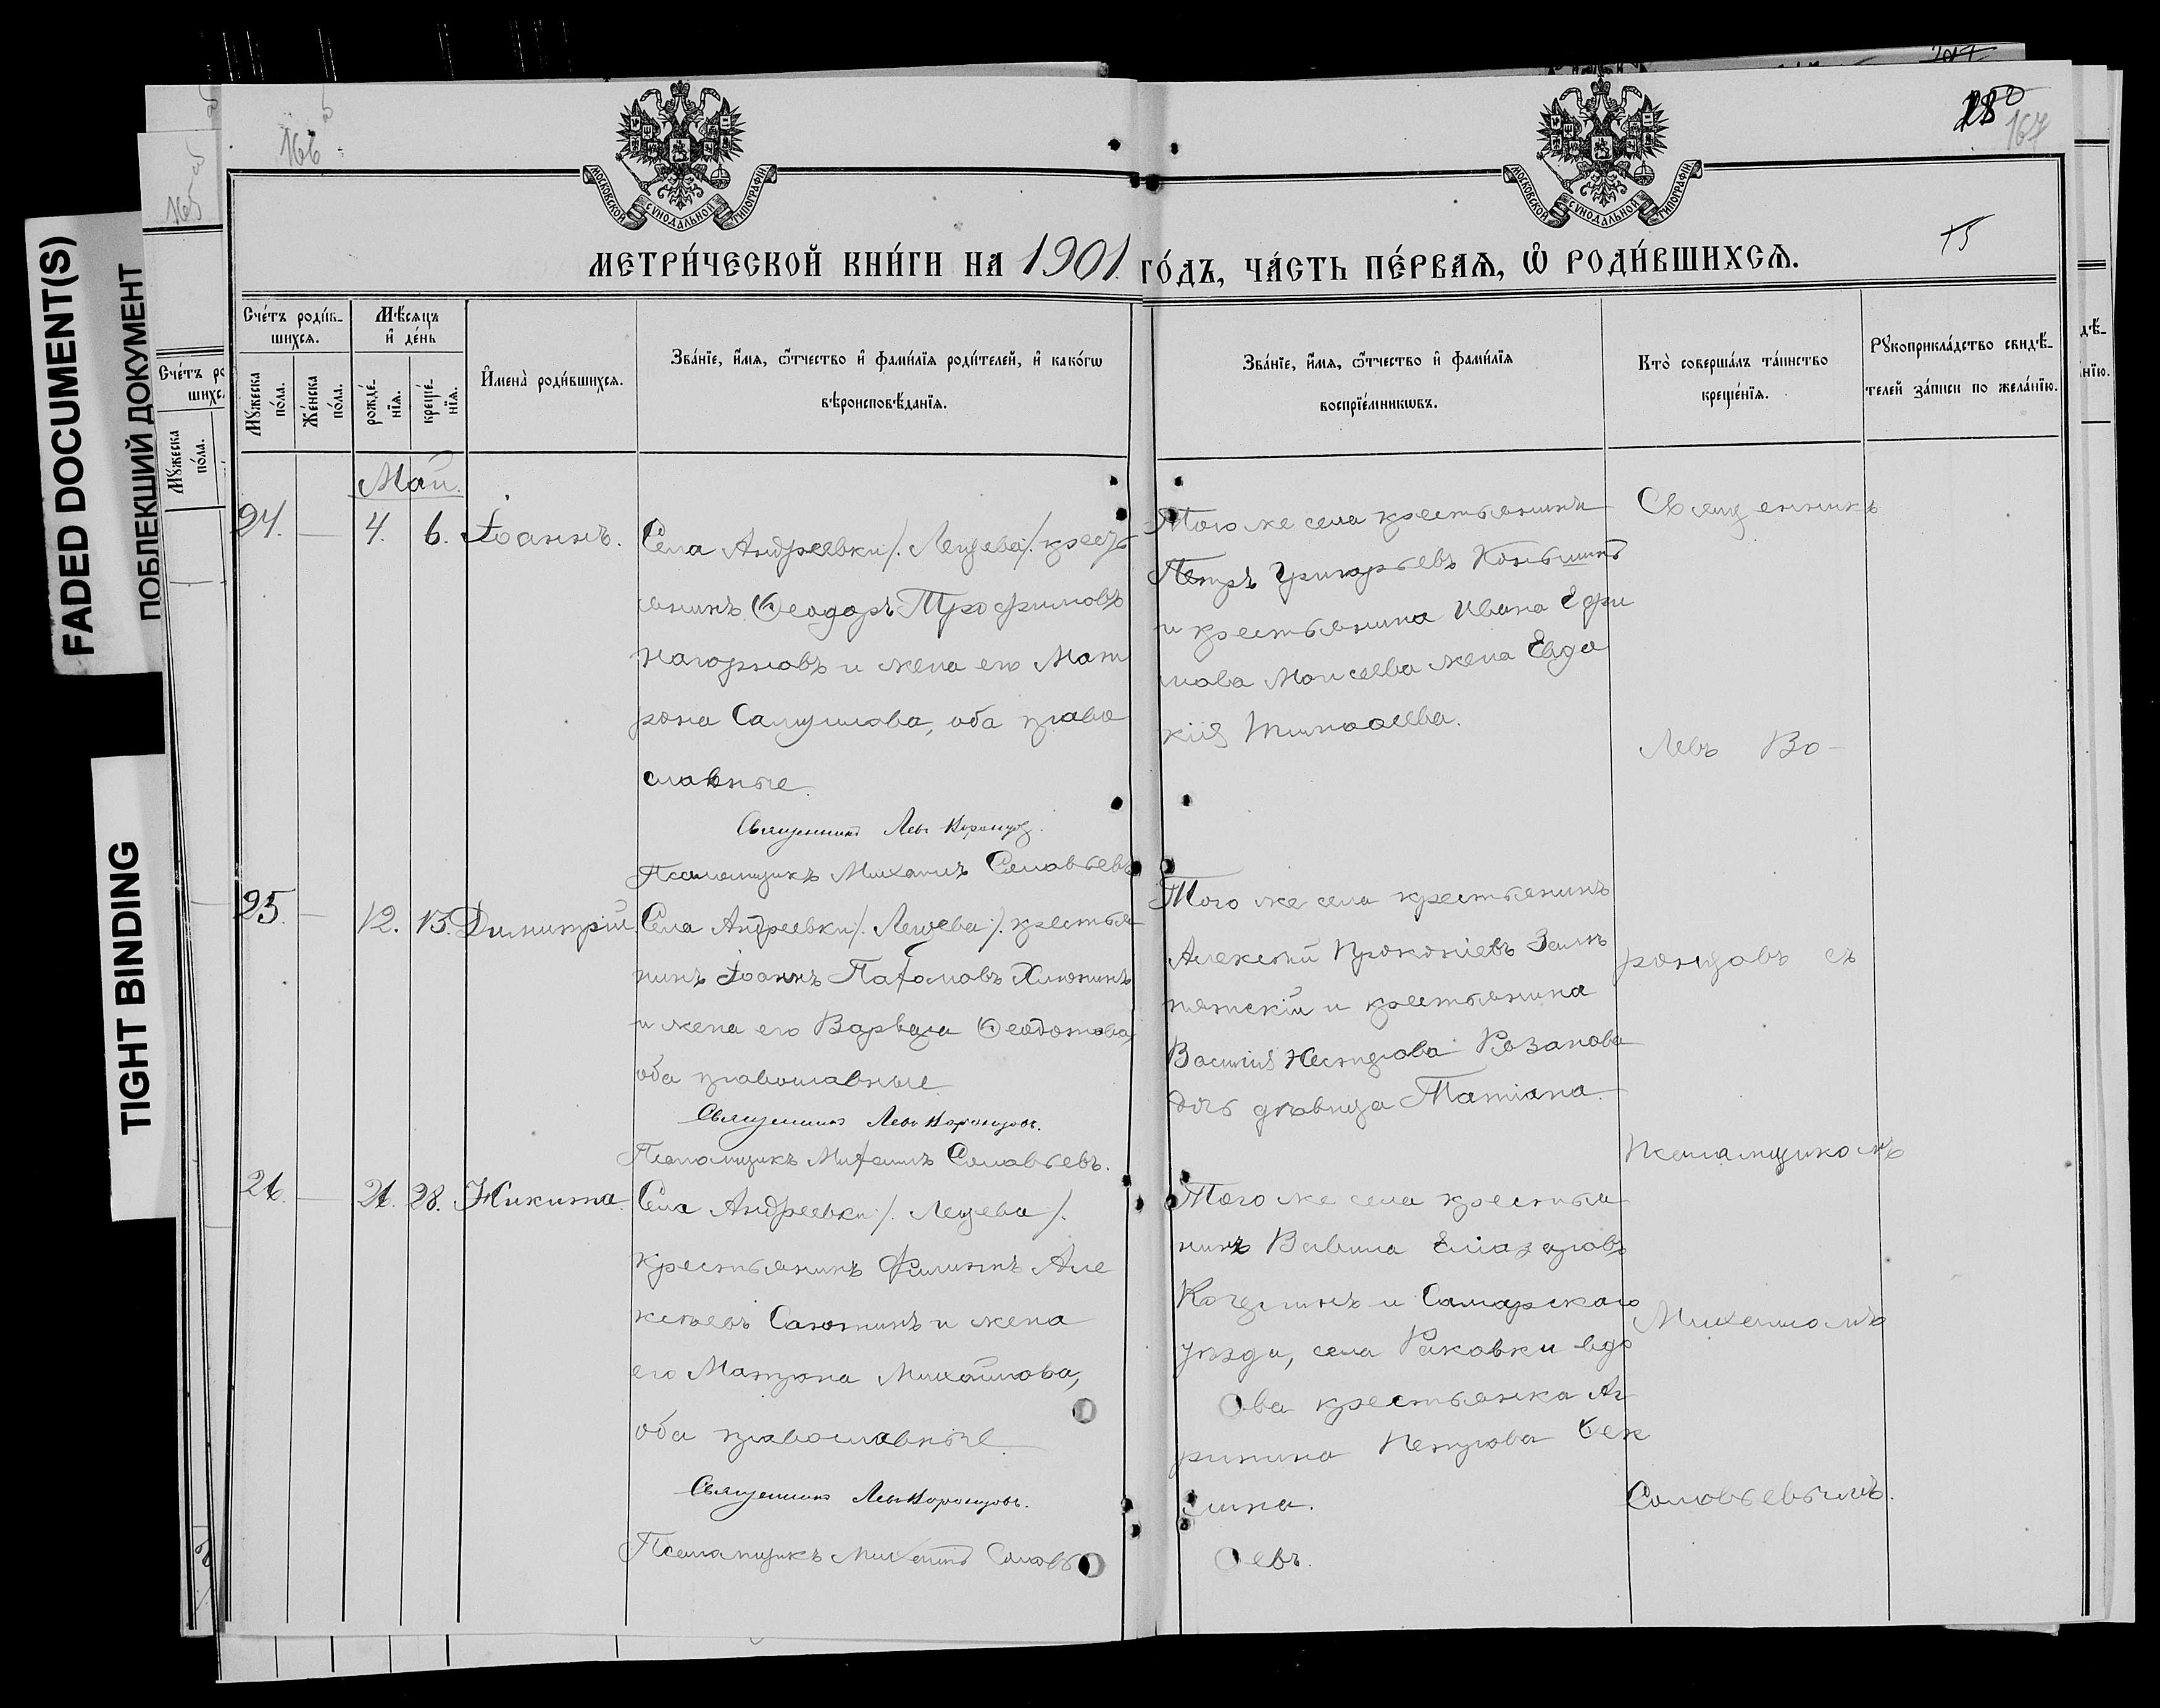 FADED DOCUMENT(S)
ПОБЛЕКШИЙ ДОКУМЕНТ
TIGHT BINDING
165
166
180
167
15
МОСКОВСКОЙ СѴНОДАЛЬНОЙ ТИПОГРАФІИ
МОСКОВСКОЙ СѴНОДАЛЬНОЙ ТИПОГРАФІИ
МЕТРИ́ЧЕСКОЙ КНИ́ГИ НА 1901 ГО́ДЪ, ЧА́СТЬ ПЕ́РВАѦ, Ѽ РОДИ́ВШИХСѦ.
Сче́тъ роди́в-
шихсѧ.
Мꙋ́жеска
по́ла.
Же́нска
по́ла.
Мѣ́сѧцъ
и҆ де́нь
рожде́-
нїѧ.
креще́-
нїѧ.
И҆мена̀ роди́вшихсѧ.
Зва́нїе, и҆́мѧ, ѻ҆́тчество и҆ фами́лїѧ роди́телей, и҆ како́гѡ
вѣроисповѣ́данїѧ.
Зва́нїе, и҆́мѧ, ѻ҆́тчество и҆ фами́лїѧ
воспрїе́мникѡвъ.
Кто̀ соверша́лъ та́инство
креще́нїѧ.
Рꙋкоприкла́дство свидѣ́-
телей за́писи по жела́нїю.
Май.
24. — 4. 6. Іоаннъ.
Села Андреевки /. Лещева /. кресть
янинъ Ѳеодоръ Трофимовъ
Нагорновъ и жена его Мат
рона Самуилова, оба право
славные.
Священникъ Левъ Воронцов.
Псаломщикъ Михаилъ Соловьевъ
Того же села крестьянинъ
Петръ Григорьевъ Коньшинъ
и крестьянина Ивана Ефи
мова Моисеева жена Евдо
кія Тимоѳеева.
25. — 12. 13. Димитрій.
Села Андреевки /. Лещева /. крестья
нинъ Іоаннъ Пахомовъ Хлюпинъ
и жена его Варвара Ѳеодотова,
оба православные
Священникъ Левъ Воронцовъ.
Псаломщикъ Михаилъ Соловьевъ.
Того же села крестьянинъ
Алексѣй Прокопіевъ Зам
пятскій и крестьянина
Василія Нестерова Розанова
дочь дѣвица Татіана.
26. — 26. 28. Никита.
Села Андреевки /. Лещева /.
крестьянинъ Филиппъ Але
ксѣевъ Сапотинъ и жена
его Матрона Михайлова,
оба православные
Священникъ Левъ Воронцовъ.
Псаломщикъ Михаилъ Соловь
евъ.
Того же села крестья
нинъ Вавила Еліазаровъ
и Самарскаго
уѣзда, села Раковки вдо
ва крестьянка Аг
рипина Петрова
шина.
Священникъ
Левъ Во-
ронцовъ съ
псаломщикомъ
Михаиломъ
Соловьевымъ.